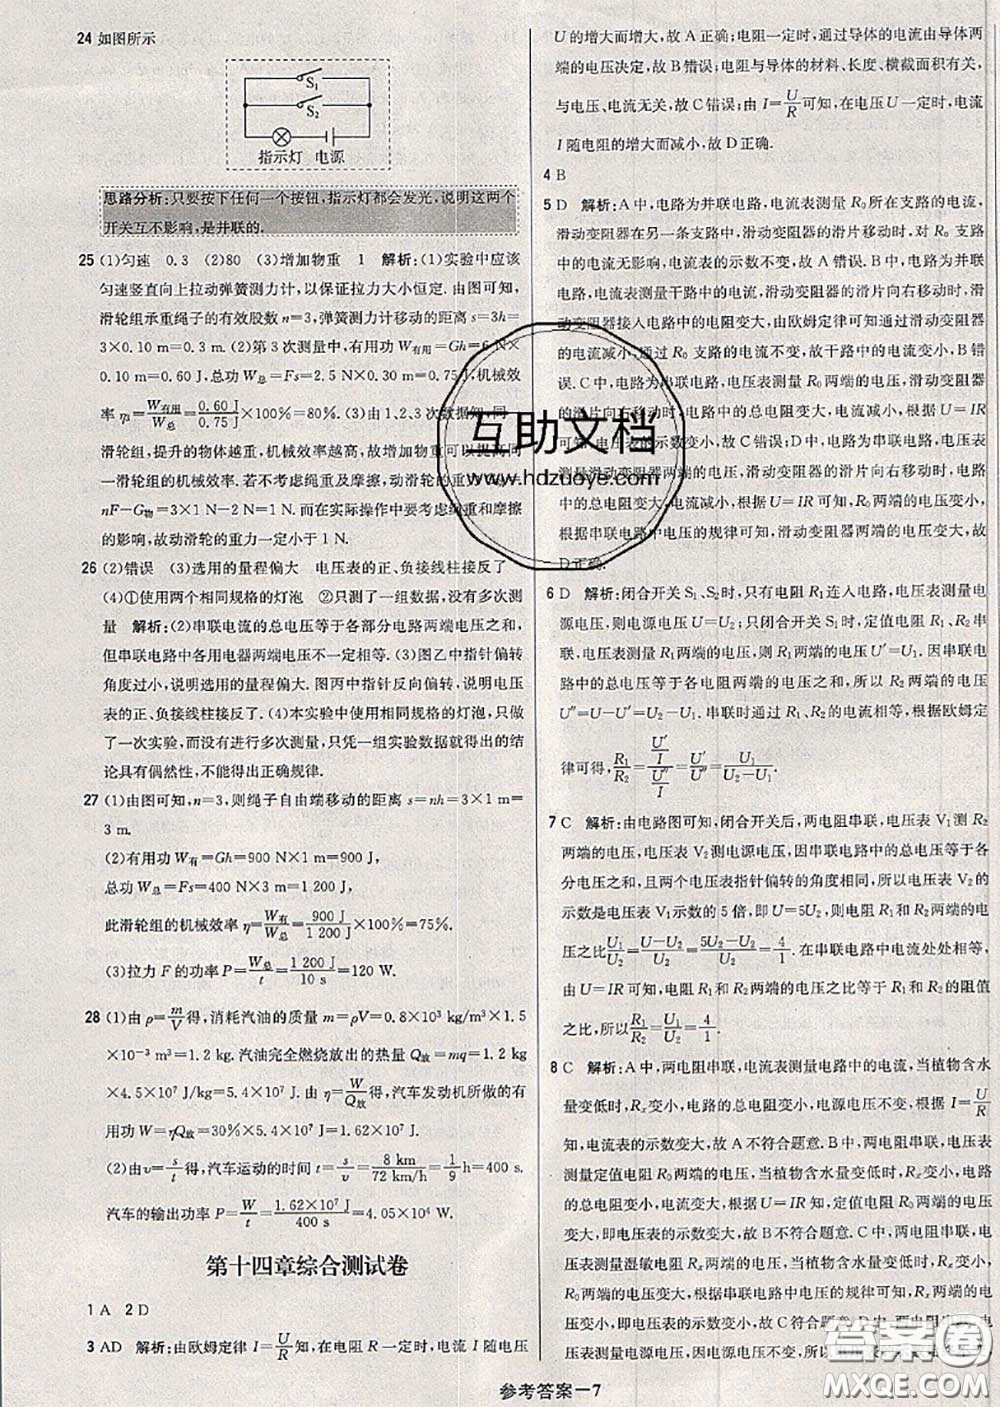 24 如图所示
S₁
S₂
指示灯 电源
思路分析:只要按下任何一个按钮,指示灯都会发光,说明这两个
开关互不影响,是并联的.
25 (1)匀速 0.3 (2)80 (3)增加物重 1 解析:(1)实验中应该
匀速竖直向上拉动弹簧测力计,以保证拉力大小恒定.由图可知,
滑轮组承重绳子的有效股数n=3,弹簧测力计移动的距离s=3h=
3×0.10 m=0.3 m.(2)第3次测量中,有用功W有用=Gh=6 N×
0.10 m=0.60 J,总功W总=Fs=2.5 N×0.30 m=0.75 J,机械效
率η₃=W有用/W总=0.60 J/0.75 J×100%=80%.(3)由1、2、3次数据知,同一
滑轮组,提升的物体越重,机械效率越高,故增加物重可以提高同
一滑轮组的机械效率.若不考虑绳重及摩擦,动滑轮的重力
nF-G物=3×1 N-2 N=1 N.而在实际操作中要考虑绳重和摩擦
的影响,故动滑轮的重力一定小于1 N.
26 (2)错误 (3)选用的量程偏大 电压表的正、负接线柱接反了
(4)①使用两个相同规格的灯泡 ②只测了一组数据,没有多次测
量 解析:(2)串联电流的总电压等于各部分电路两端电压之和,
但串联电路中各用电器两端电压不一定相等.(3)图乙中指针偏转
角度过小,说明选用的量程偏大.图丙中指针反向偏转,说明电压
表的正、负接线柱接反了.(4)本实验中使用相同规格的灯泡,只做
了一次实验,而没有进行多次测量,只凭一组实验数据就得出的结
论具有偶然性,不能得出正确规律.
27 (1)由图可知,n=3,则绳子自由端移动的距离s=nh=3×1 m=
3 m.
(2)有用功W有=Gh=900 N×1 m=900 J,
总功W总=Fs=400 N×3 m=1 200 J,
此滑轮组的机械效率η=W有/W总=900 J/1 200 J×100%=75%.
(3)拉力F的功率P=W总/t=1 200 J/10 s=120 W.
28 (1)由ρ=m/V得,消耗汽油的质量m=ρV=0.8×10³ kg/m³×1.5
×10⁻³ m³=1.2 kg.汽油完全燃烧放出的热量Q放=mq=1.2 kg
×4.5×10⁷ J/kg=5.4×10⁷ J.由η=W/Q放得,汽车发动机所做的有
用功W=ηQ放=30%×5.4×10⁷ J=1.62×10⁷ J.
(2)由v=s/t得,汽车运动的时间t=s/v=8 km/72 km/h=1/9 h=400 s.
汽车的输出功率P=W/t=1.62×10⁷ J/400 s=4.05×10⁴ W.
第十四章综合测试卷
1 A 2 D
3 AD 解析:由欧姆定律I=U/R知,在电阻R一定时,电流I随电压
U的增大而增大,故A正确;电阻一定时,通过导体的电流由导体两
端的电压决定,故B错误;电阻与导体的材料、长度、横截面积有关,
与电压、电流无关,故C错误;由I=U/R可知,在电压U一定时,电流
I随电阻的增大而减小,故D正确.
4 B
5 D 解析:A中,电路为并联电路,电流表测量R₀所在支路的电流,
滑动变阻器在另一条支路中,滑动变阻器的滑片移动时,对R₀中
的电流无影响,电流表的示数不变,故A错误.B中,电路为并联电
路,电流表测量干路中的电流,滑动变阻器的滑片向右移动时,滑动
变阻器接入电路中的电阻变大,由欧姆定律可知通过滑动变阻器
的电流减小,通过R₀支路的电流不变,故干路中的电流减小,B错
误.C中,电路为串联电路,电压表测量R₀两端的电压,滑动变阻器
的滑片向右移动时,电路中的总电阻变大,电流减小,根据U=IR
可知,电压表的示数变小,故C错误;D中,电路为串联电路,电压表
测量滑动变阻器两端的电压,滑动变阻器的滑片向右移动时,电路
中的总电阻变大,电流减小,根据U=IR可知R₀两端的电压变小,
根据串联电路中电压的规律可知,滑动变阻器两端的电压变大,故
D正确.
6 D 解析:闭合开关S₁、S₂时,只有电阻R₁连入电路,电压表测量电
源电压,则电源电压U=U₂;只闭合开关S₁时,定值电阻R₁、R₂串
联,电压表测量R₁两端的电压,则R₁两端的电压U′=U₁.因串联电
路中的总电压等于各电阻两端的电压之和,所以R₂两端的电压
U″=U-U′=U₂-U₁.串联时通过R₁、R₂的电流相等,根据欧姆定
律可得,R₁/R₂=(U′/I)/(U″/I)=U′/U″=U₁/(U₂-U₁).
7 C 解析:由电路图可知,闭合开关后,两电阻串联,电压表V₁测R₂
两端的电压,电压表V₂测电源电压,因串联电路中的总电压等于各
分电压之和,且两个电压表指针偏转的角度相同,所以电压表V₂的
示数是电压表V₁示数的5倍,即U=5U₂,则电阻R₁和R₂两端的电
压之比U₁/U₂=(U-U₂)/U₂=(5U₂-U₂)/U₂=4/1.在串联电路中电流处处相等,
由U=IR可知,电阻R₁和R₂两端的电压之比等于R₁和R₂的阻值
之比,所以R₁/R₂=U₁/U₂=4/1.
8 C 解析:A中,两电阻串联,电流表测量电路中的电流,当植物含水
量变低时,Rₓ变小,电路的总电阻变小,电源电压不变,根据I=U/R
知,电流表的示数变大,故A不符合题意.B中,两电阻串联,电压表
测量定值电阻R₀两端的电压,当植物含水量变低时,Rₓ变小,电路
的总电阻变小,电流变大,根据U=IR知,定值电阻R₀两端的电压
变大,即电压表示数变大,故B不符合题意.C中,两电阻串联,电压
表测量湿敏电阻Rₓ两端的电压,当植物含水量变低时,Rₓ变小,
R₀两端的电压变大,根据串联电路中电压的规律可知,Rₓ两端的电
压变小,即电压表示数变小,故C符合题意.D中,
电压表测量电源电压,因电源电压不变,所以
参考答案—7
互助文档
www.hdzuoye.com
答案圈
MXQE.COM